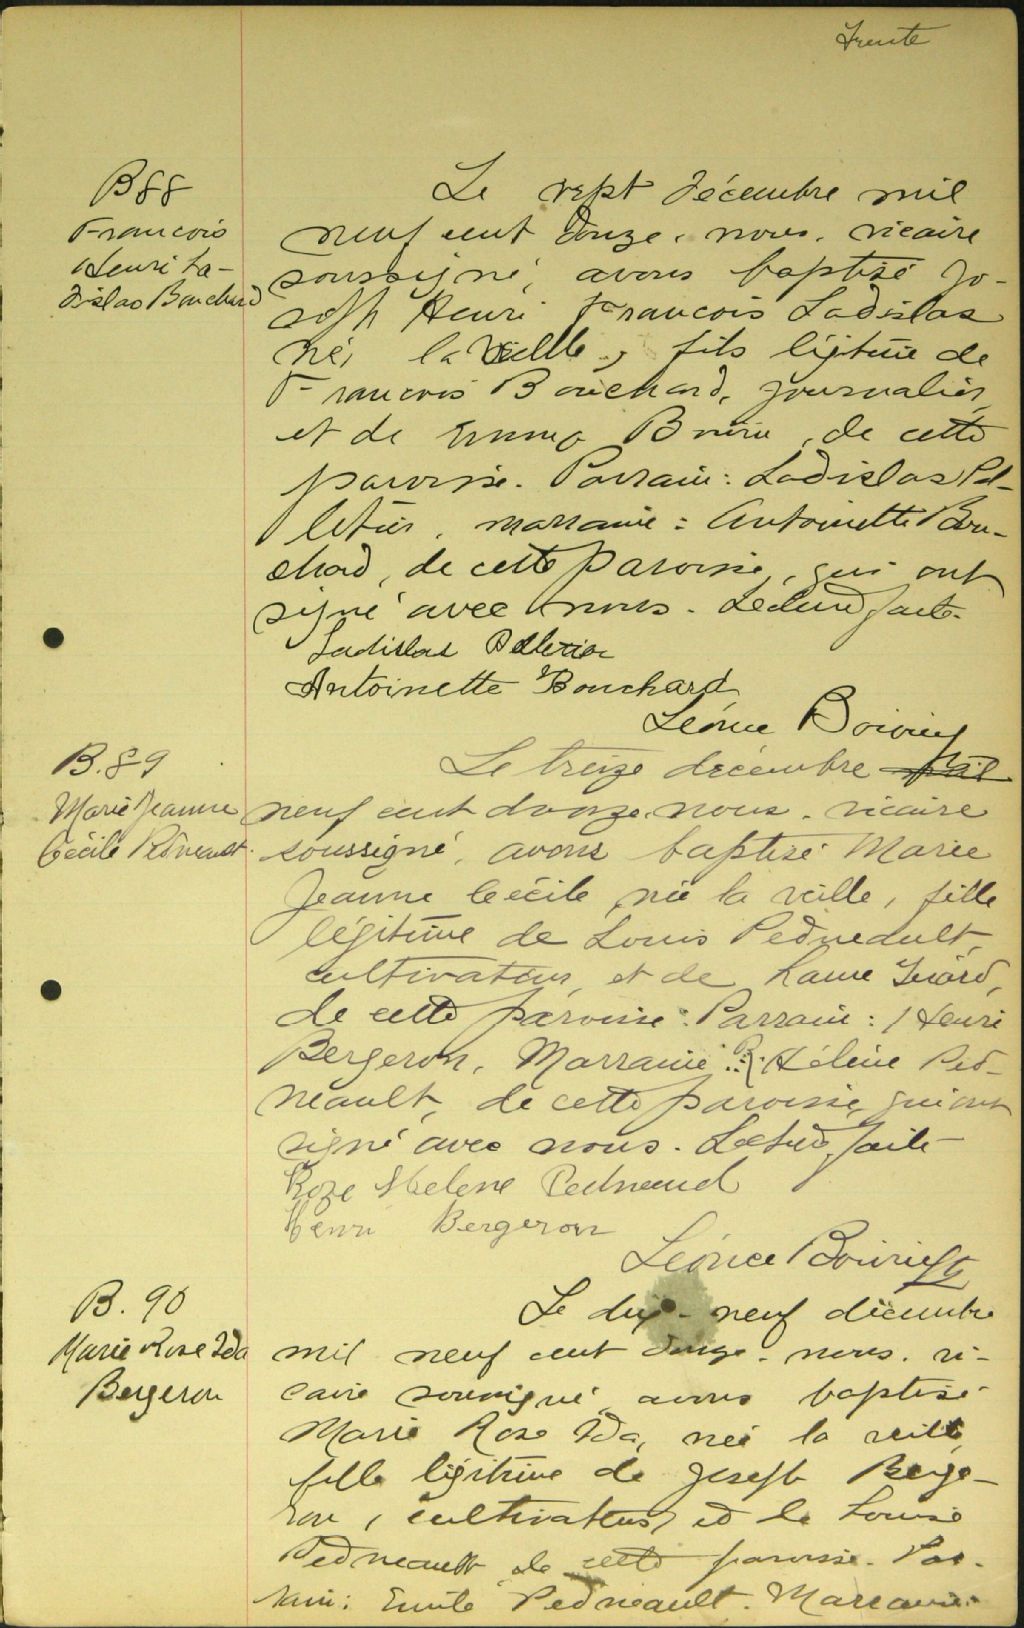 Trente
B88
François
Henri La-
dislas Bouchard
Le sept décembre mil
neuf cent douze, nous, vicaire
soussigné, avons baptisé Jo-
seph Henri François Ladislas
né, la veille, fils légitime de
François Bouchard, journalier,
et de Emma , de cette
paroisse. Parrain: Ladislas Pel-
letier, marraine: Antoinette Bou-
chard, de cette paroisse, qui ont
signé avec nous. Lecture faite.
Ladislas Pelletier
Antoinette Bouchard
Léonce Boivin ptr
B.89
Marie Jeanne
Cécile Pedneault.
Le treize décembre mil
neuf cent douze, nous, vicaire
soussigné, avons baptisé Marie
Jeanne Cécile, née la veille, fille
légitime de Louis Pedneault,
cultivateur, et de Laure Girard,
de cette paroisse. Parrain: Henri
Bergeron, Marraine: R. Hélène Ped-
neault, de cette paroisse, qui ont
signé avec nous. Lecture faite
Roze Helene Pedneaud
Henri Bergeron
Léonce Boivin ptr
B. 90
Marie Rose Ida
Bergeron
Le dix-neuf décembre
mil neuf cent douze, nous, vi-
caire soussigné, avons baptisé
Marie Rose Ida, née la veille,
fille légitime de Joseph Berge-
ron, cultivateur, et de Louise
Pedneault, de cette paroisse. Par-
rain: Emile Pedneault. Marraine: